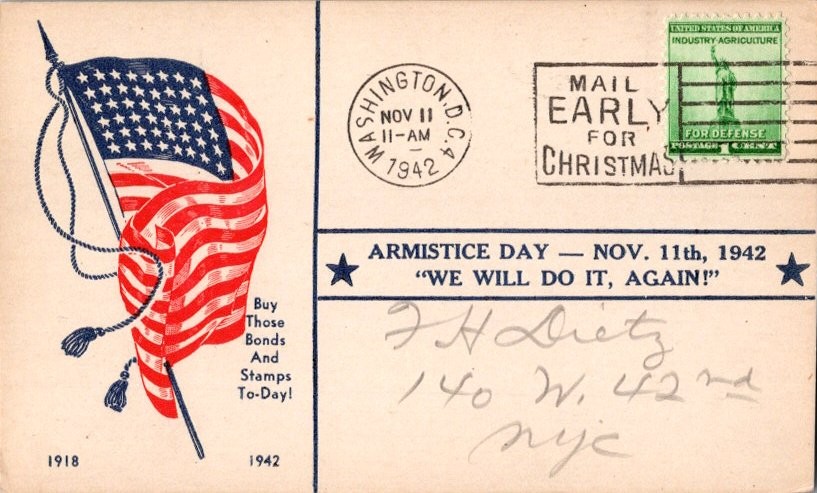 Buy
Those
Bonds
And
Stamps
To-Day!
1918 1942
WASHINGTON, D.C. 4
NOV 11
11-AM
1942
MAIL
EARLY
FOR
CHRISTMAS
UNITED STATES OF AMERICA
INDUSTRY·AGRICULTURE
FOR DEFENSE
POSTAGE 1 CENT
ARMISTICE DAY — NOV. 11th, 1942
"WE WILL DO IT, AGAIN!"
F H Dietz
140 W. 42nd
nyc